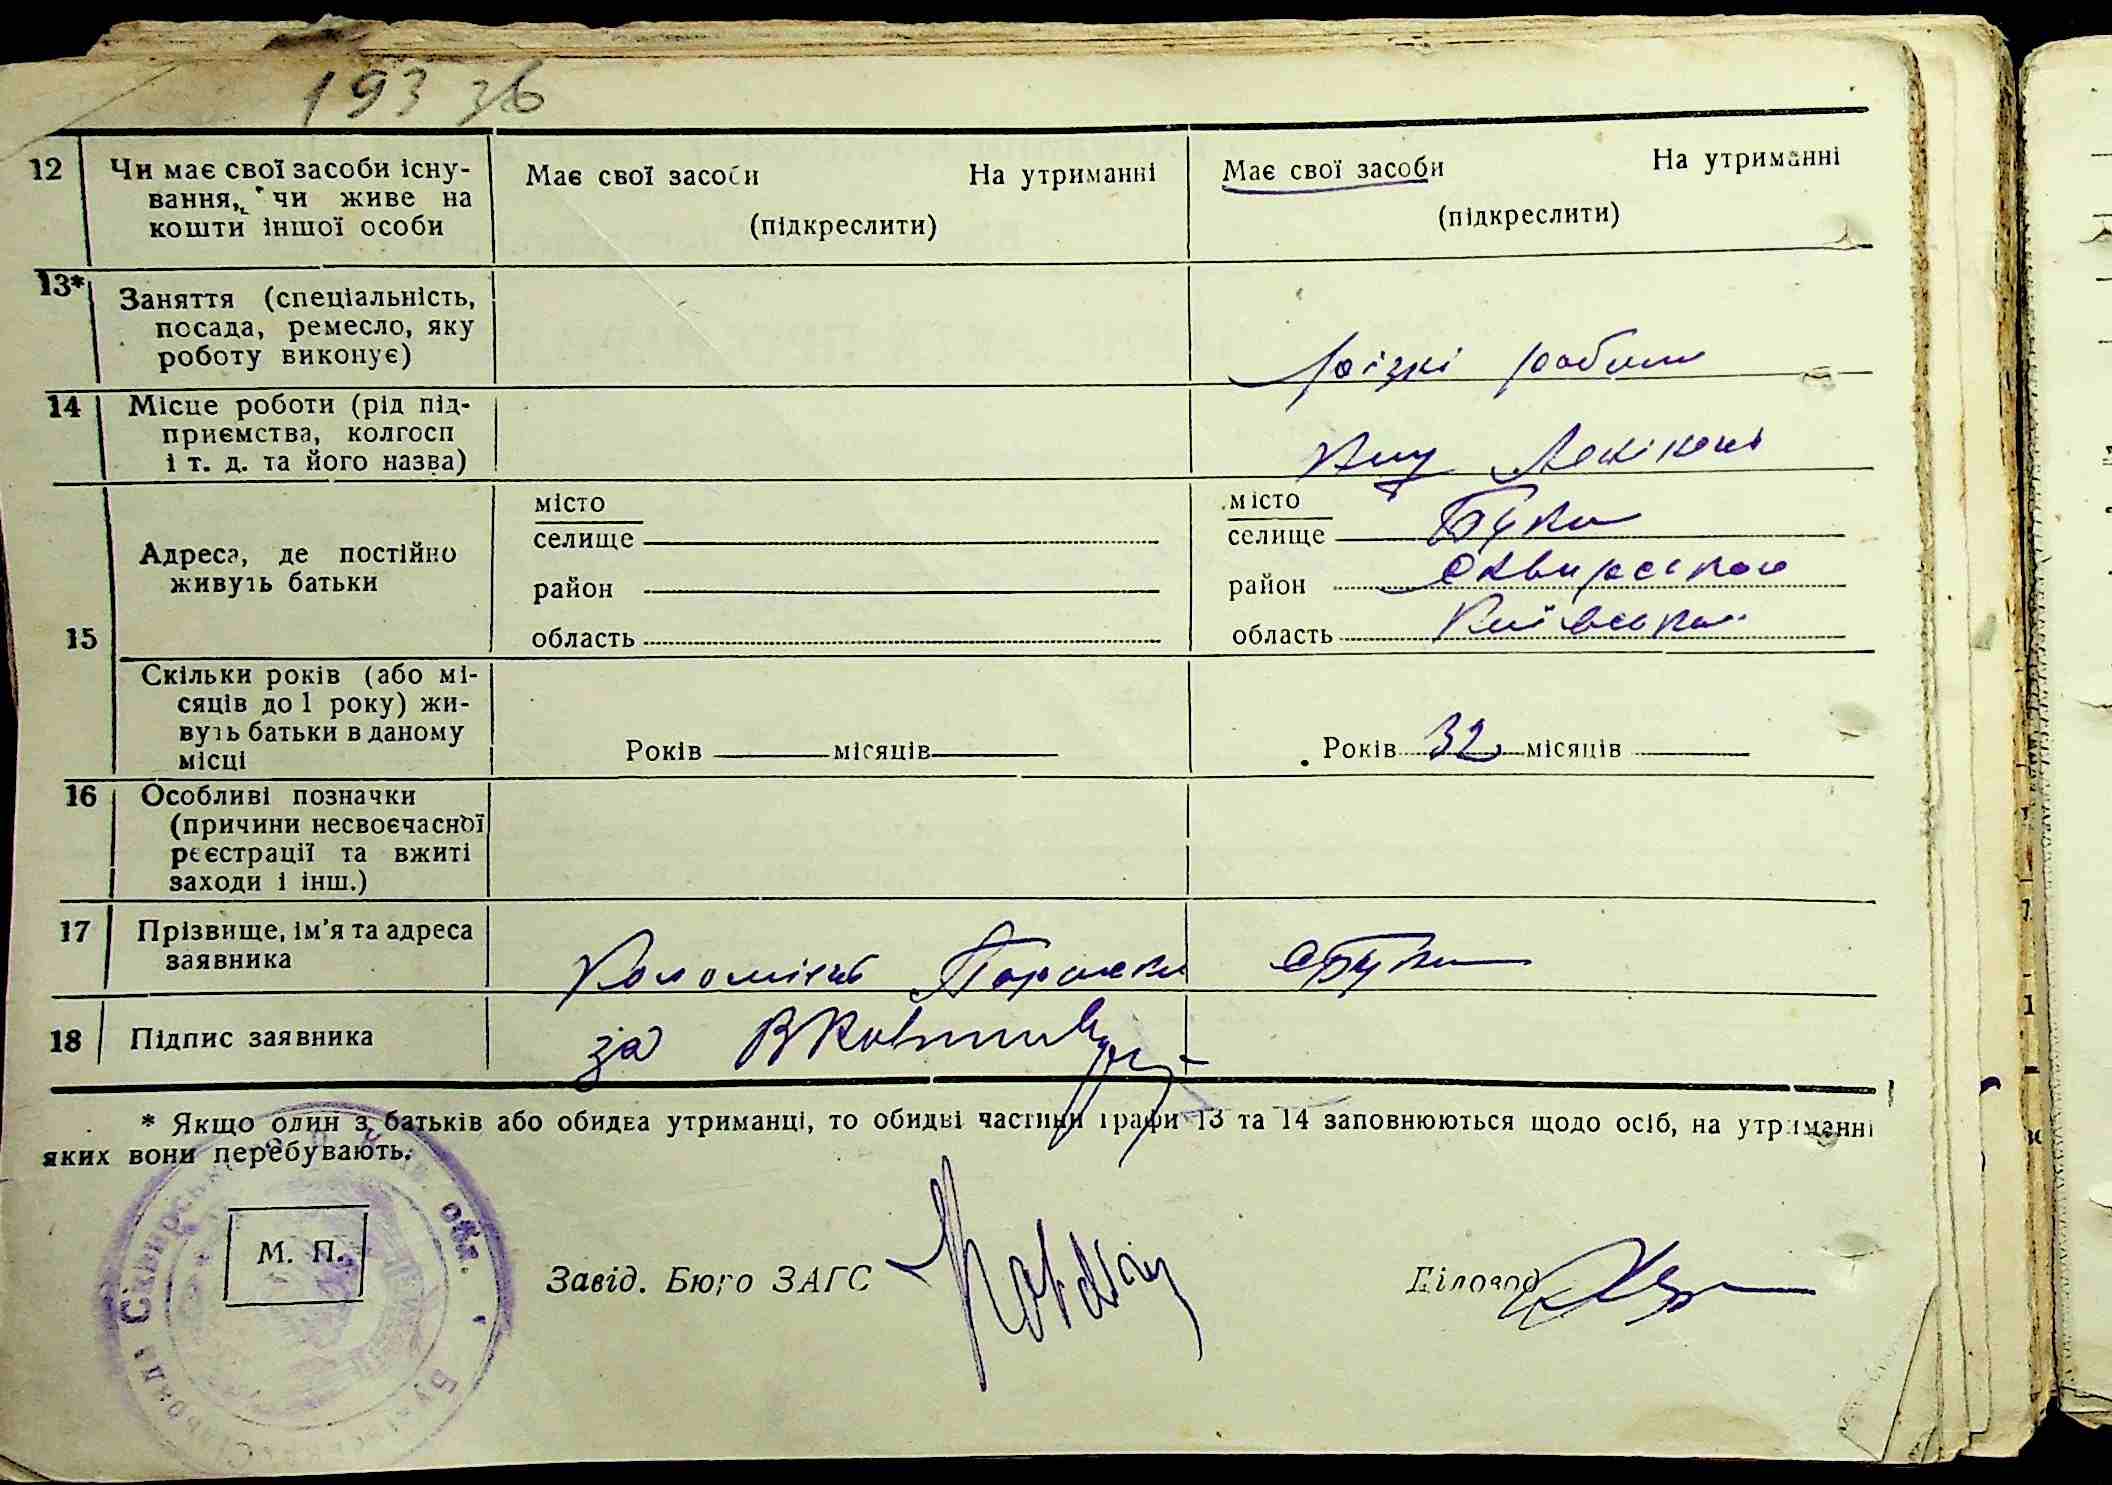 193 зв
12 Чи має свої засоби існу-
вання, чи живе на
кошти іншої особи
Має свої засоби На утриманні
(підкреслити)
Має свої засоби На утриманні
(підкреслити)
13* Заняття (спеціальність,
посада, ремесло, яку
роботу виконує)
різні роботи
14 Місце роботи (рід під-
приємства, колгосп
і т. д. та його назва)
15 Адреса, де постійно
живуть батьки
місто
селище
район
область
місто
селище Буки
район Сквирського
область Київської
Скільки років (або мі-
сяців до 1 року) жи-
вуть батьки в даному
місці
Років місяців
Років 32 місяців
16 Особливі позначки
(причини несвоєчасної
реєстрації та вжиті
заходи і інш.)
17 Прізвище, ім'я та адреса
заявника
Коломієць Параска с Буки
18 Підпис заявника
за
* Якщо один з батьків або обидва утриманці, то обидві частини графи 13 та 14 заповнюються щодо осіб, на утриманні
яких вони перебувають.
М. П.
Завід. Бюро ЗАГС
Діловод